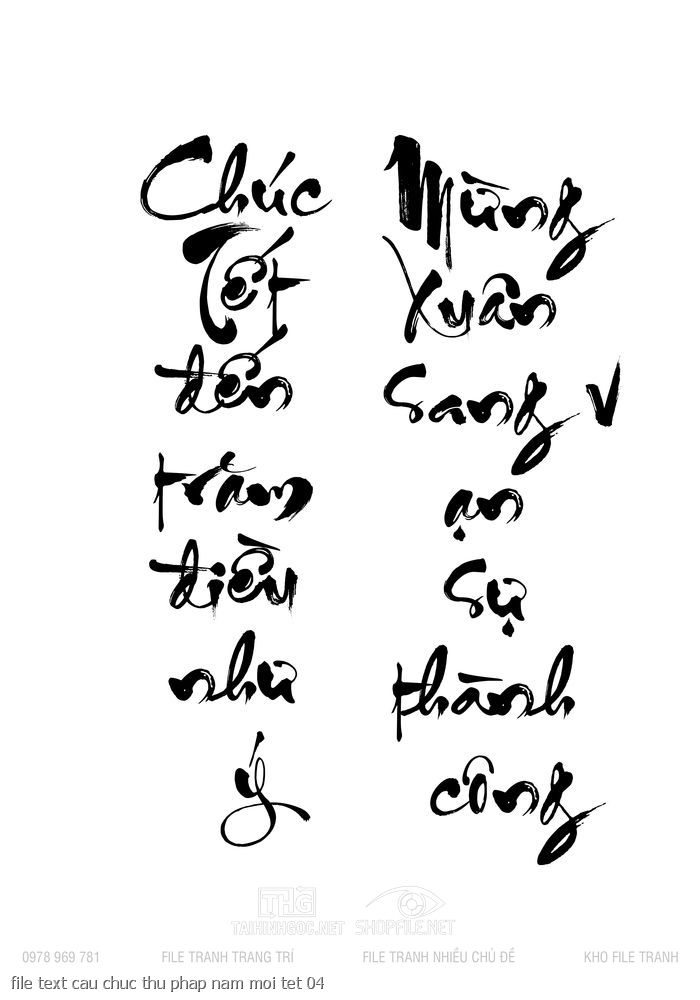 Chúc
Tết
đến
trăm
điều
như
ý
Mừng
Xuân
sang V
ạn
sự
thành
công
THG
TAIHINHGOC.NET
SHOPFILE.NET
0978 969 781 FILE TRANH TRANG TRÍ FILE TRANH NHIỀU CHỦ ĐỀ KHO FILE TRANH
file text cau chuc thu phap nam moi tet 04